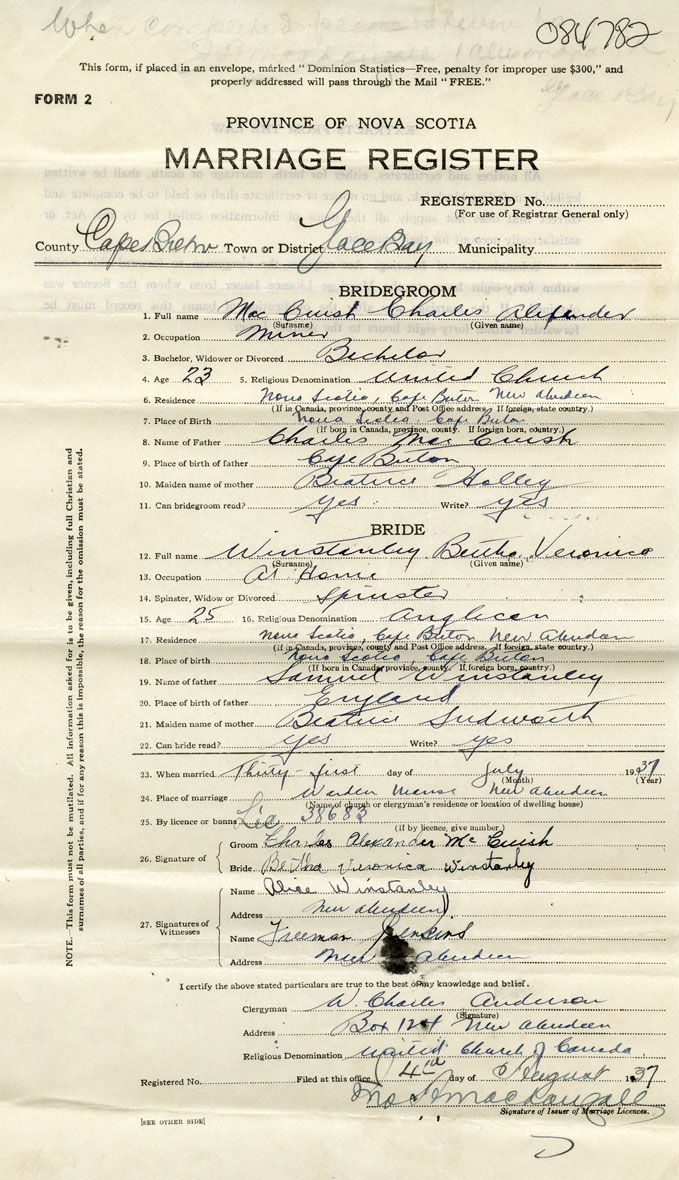 084782
This form, if placed in an envelope, marked "Dominion Statistics—Free, penalty for improper use $300," and
properly addressed will pass through the Mail "FREE."
FORM 2
PROVINCE OF NOVA SCOTIA
MARRIAGE REGISTER
REGISTERED No.
(For use of Registrar General only)
County Cape Breton Town or District Glace Bay Municipality
BRIDEGROOM
1. Full name Mac Cuish Charles Alexander
(Surname) (Given name)
2. Occupation Miner
3. Bachelor, Widower or Divorced Bachelor
4. Age 23 5. Religious Denomination United Church
6. Residence Nova Scotia, Cape Breton New Aberdeen
(If in Canada, province, county and Post Office address. If foreign, state country.)
7. Place of Birth Nova Scotia Cape Breton
(If born in Canada, province, county. If foreign born, country.)
8. Name of Father Charles Mac Cuish
9. Place of birth of father Cape Breton
10. Maiden name of mother Beatrice Holley
11. Can bridegroom read? yes Write? yes
BRIDE
12. Full name Winstanley Bertha Veronica
(Surname) (Given name)
13. Occupation At Home
14. Spinster, Widow or Divorced Spinster
15. Age 25 16. Religious Denomination Anglican
17. Residence Nova Scotia, Cape Breton New Aberdeen
(If in Canada, province, county and Post Office address. If foreign, state country.)
18. Place of birth Nova Scotia, Cape Breton
(If born in Canada, province, county. If foreign born, country.)
19. Name of father Samuel Winstanley
20. Place of birth of father England
21. Maiden name of mother Beatrice Sudworth
22. Can bride read? yes Write? yes
23. When married Thirty-first day of July 1937
(Month) (Year)
24. Place of marriage Warden Manse New Aberdeen
(Name of church or clergyman's residence or location of dwelling house)
25. By licence or banns Lic 38683
(If by licence, give number)
26. Signature of
Groom Charles Alexander McCuish
Bride Bertha Veronica Winstanley
27. Signatures of Witnesses
Name Alice Winstanley
Address New Aberdeen
Name Freeman Jenkins
Address New Aberdeen
I certify the above stated particulars are true to the best of my knowledge and belief.
Clergyman W. Charles Anderson
(Signature)
Address Box 124 New Aberdeen
Religious Denomination United Church of Canada
Registered No. Filed at this office 4th day of August 1937
MacDougall
Signature of Issuer of Marriage Licences.
[SEE OTHER SIDE]
NOTE.—This form must not be mutilated. All information asked for is to be given, including full Christian and
surnames of all parties, and if for any reason this is impossible, the reason for the omission must be stated.